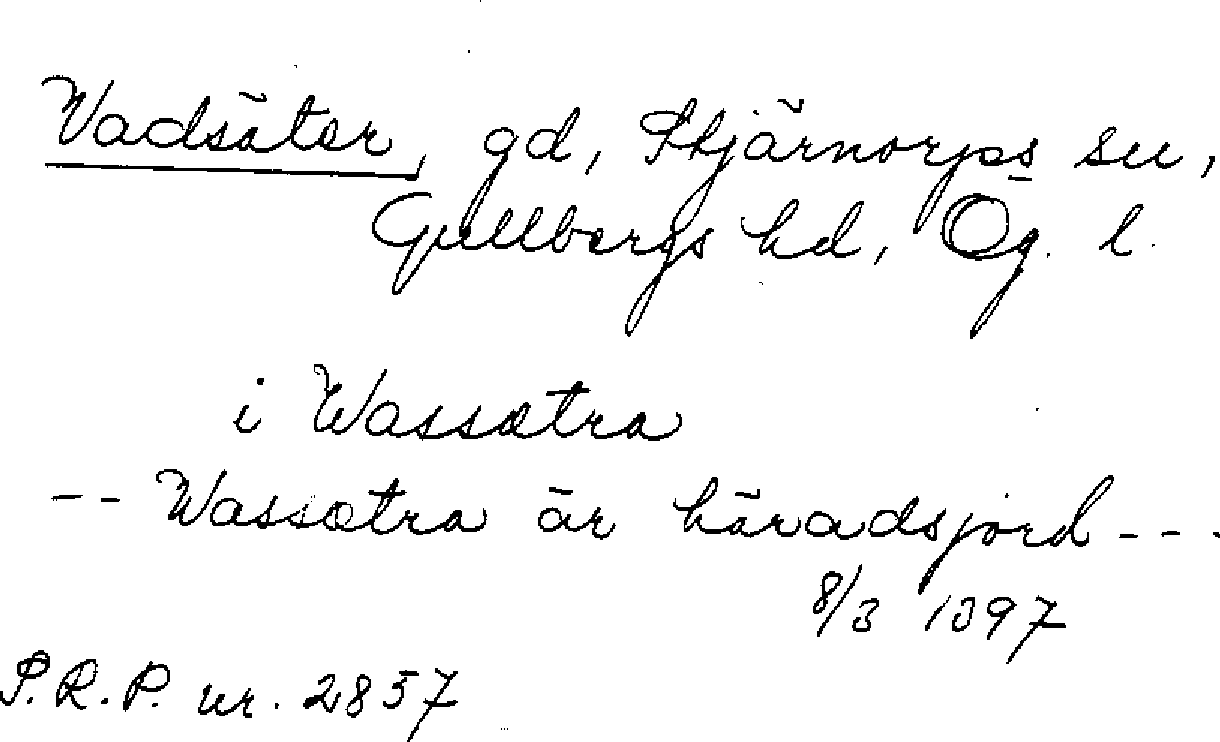 Vadsäter, gd, Stjärnorps sn,
Gullbergs hd, Ög. l.
i Wassætra
-- Wassætra är häradsjord ---
8/3 1397
S.R.P. nr. 2857